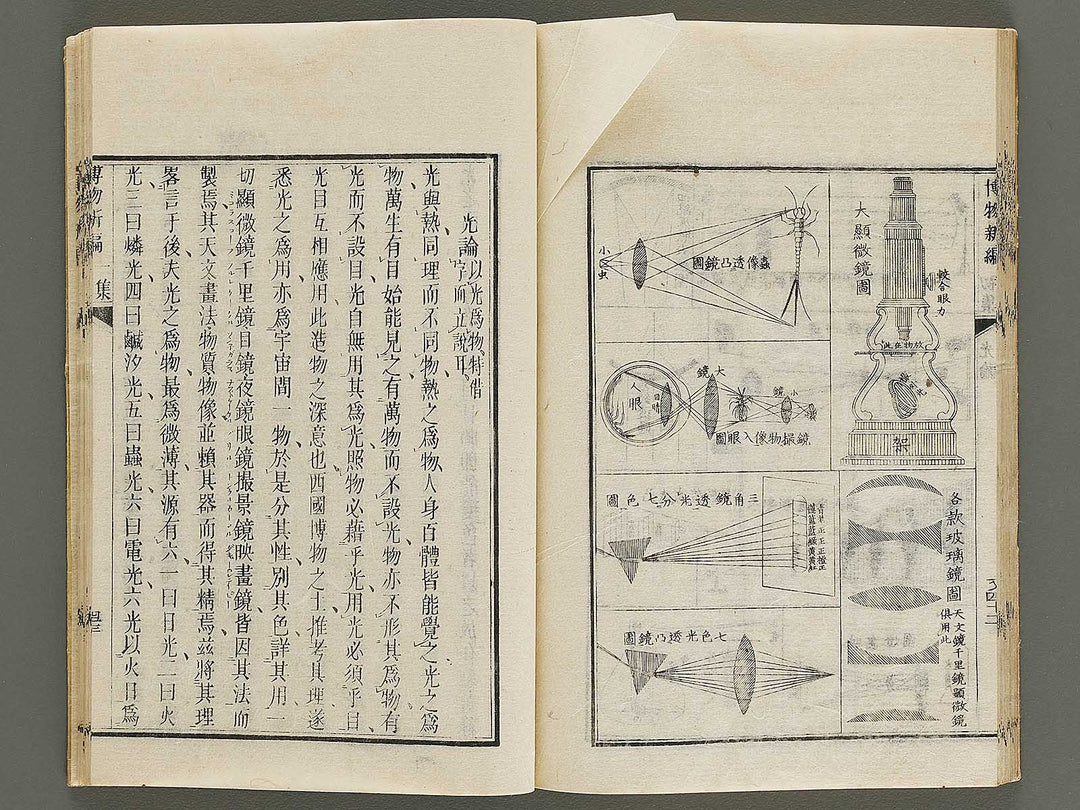 博物新編
大顯微鏡圖
較合眼力
放物在此
架
各款玻璃鏡圖
天文鏡千里鏡顯微鏡
俱用此
蟲像透凸鏡圖
小蟲
人眼
目睛
大鏡
小鏡
鏡撮物像入眼圖
三角鏡透光分七色圖
七色光透凸鏡圖
光論 以光爲物特借
字而立說耳
光與熱同理而不同物熱之爲物人身百體皆能覺之光之爲
物萬生有目始能見之有萬物而不設光物亦不形其爲物有
光而不設目光自無用其爲光照物必藉乎光用光必須乎目
光目互相應用此造物之深意也西國博物之士推考其理遂
悉光之爲用亦爲宇宙間一物於是分其性別其色詳其用一
切顯微鏡千里鏡目鏡夜鏡眼鏡撮景鏡映畫鏡皆因其法而
製焉其天文畫法物質物像並賴其器而得其精焉兹將其理
畧言于後夫光之爲物最爲微薄其源有六一曰日光二曰火
光三曰燐光四曰鹹汐光五曰蟲光六曰電光六光以火日爲
博物新編
一集